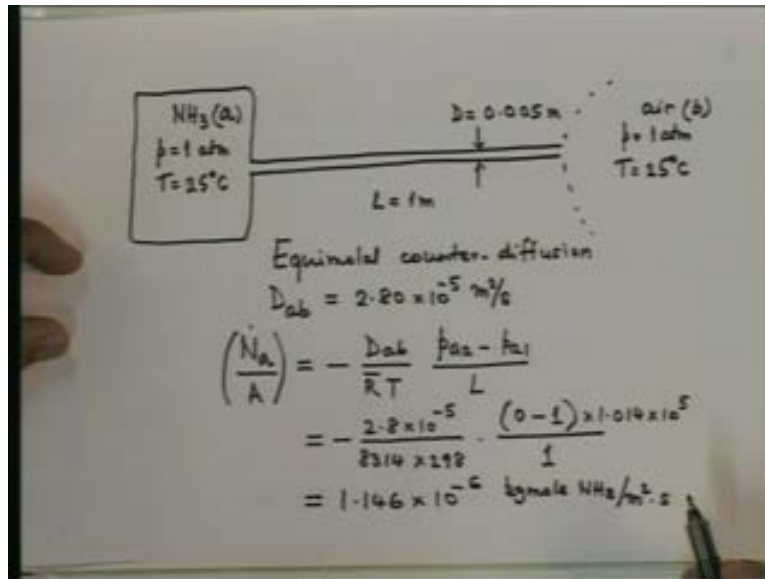 NH₃(a)
p=1 atm
T=25°C
D=0.005m
air (b)
p=1atm
T=25°C
L=1m
Equimolal counter-diffusion
D_ab = 2.80×10⁻⁵ m²/s
(Ṅ_a/A) = - D_ab/R̄T (p_a2 - p_a1)/L
= - 2.8×10⁻⁵/8314×298 · (0-1)×1.014×10⁵/1
= 1.146×10⁻⁶ kgmole NH₃/m².s